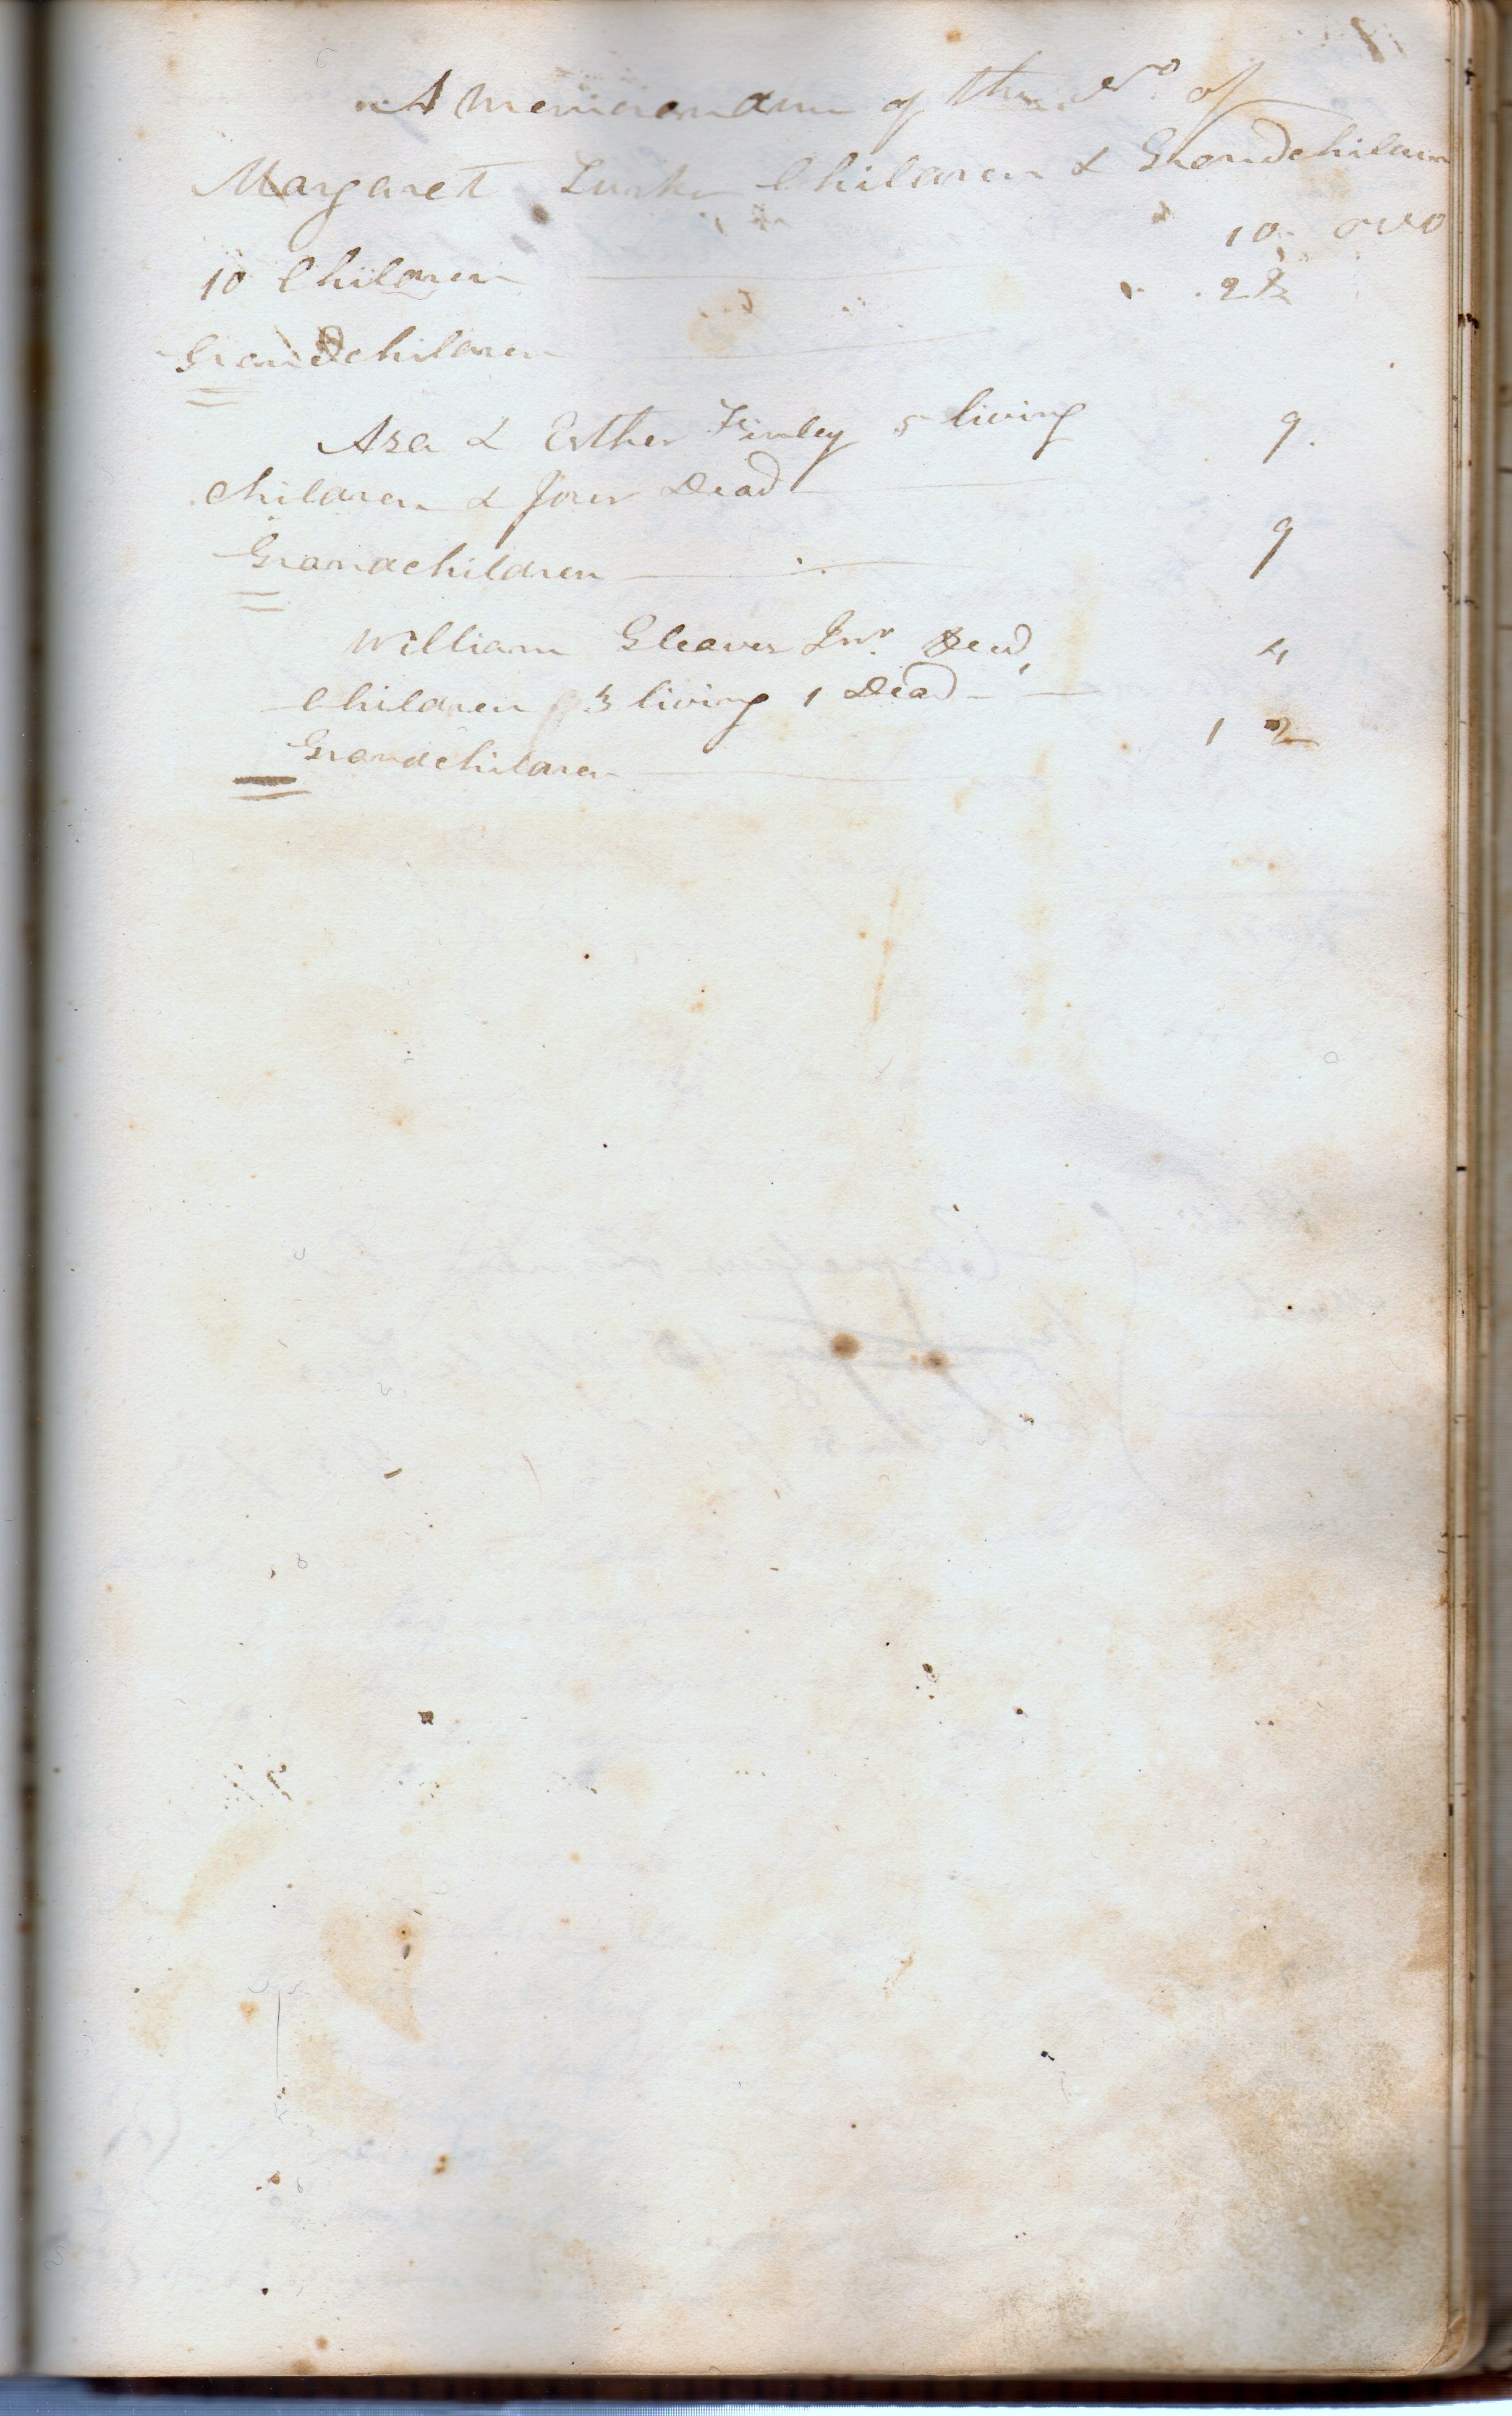 A memorandum of the No. of
Margaret Children & Grandchildren
10 Children 10.
Grandchildren
Asa & Esther Finley 5 living
children & four Dead 9.
Grandchildren 9
William Cleaver Jnr. Dead,
Children 3 living 1 Dead 4
Grandchildren 12